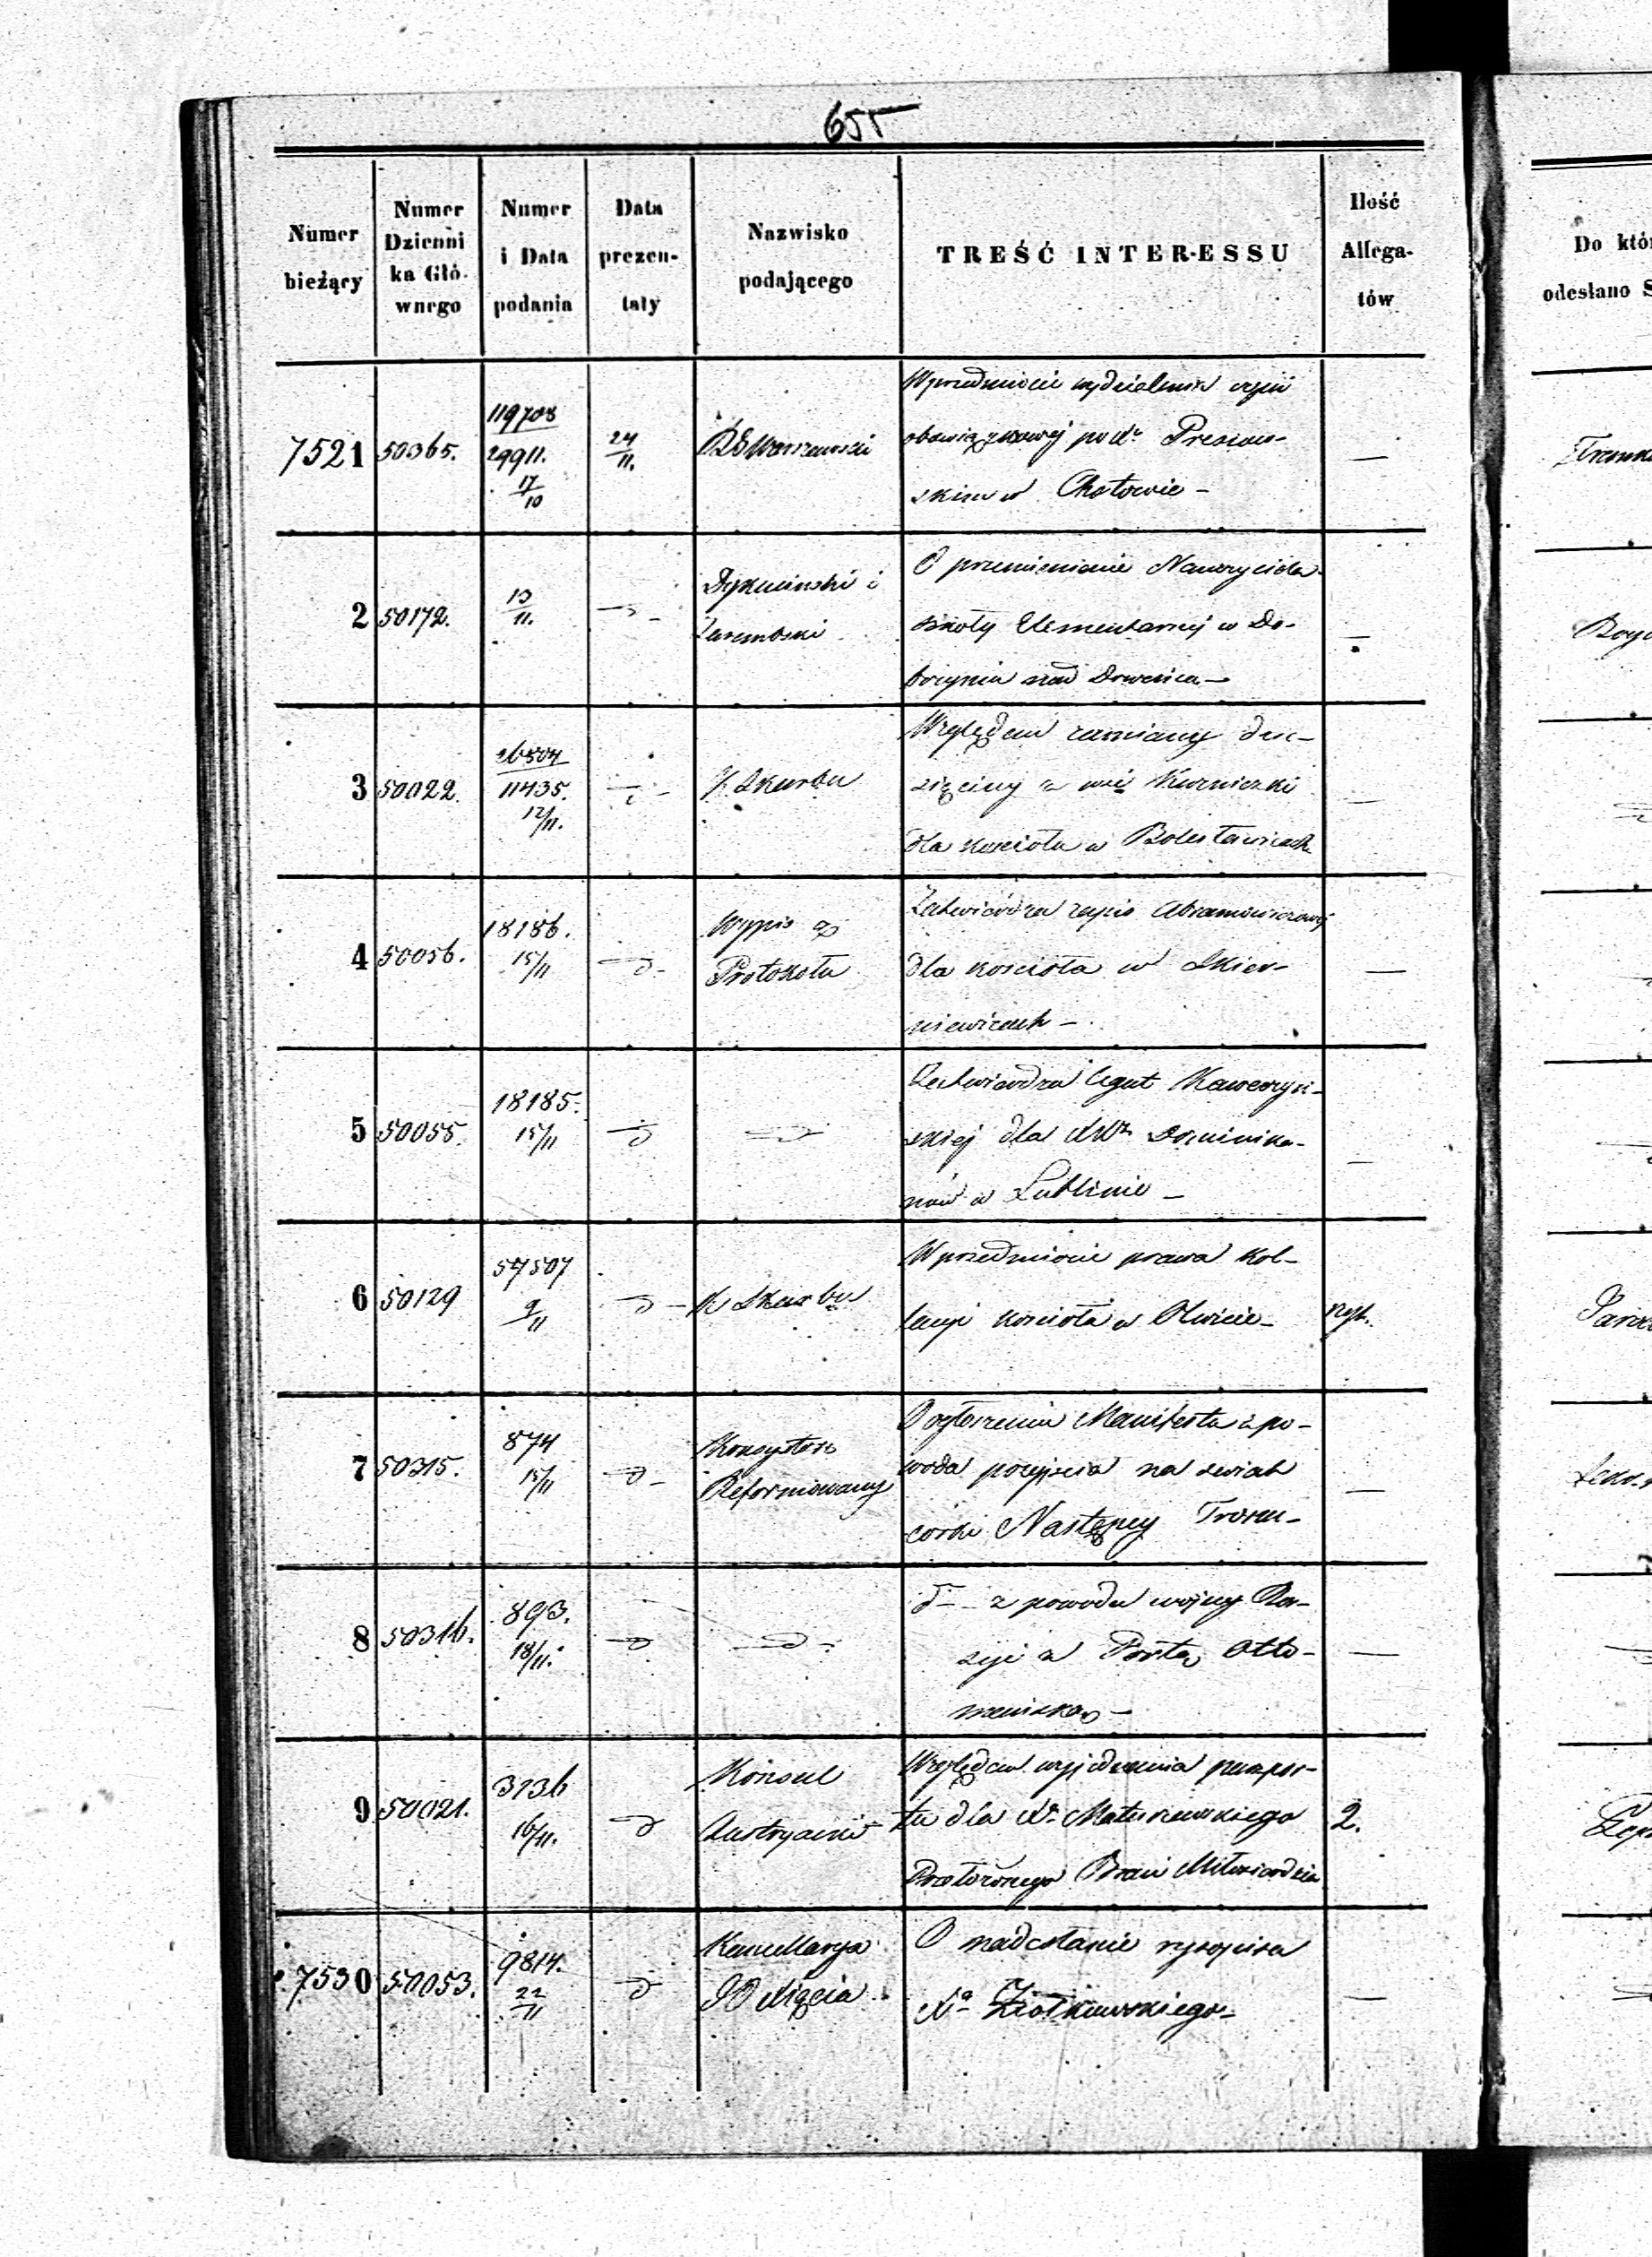 655
Numer bieżący
Numer Dzienni ka Głó- wnego
Numer i Data podania
Data prezen- taty
Nazwisko podającego
TREŚĆ INTER-ESSU
Ilość Allega- tów
Do któ
odesłano S
7521 50365. 119708 29911. 17/10 24/11. Warszawski
W przedmiocie wydzielenia
obowiązkowej po
skim w Chotowie –
—
2 50172. 13/11. i
O przemienienie Nauczyciela
szkoły Elementarnej w Do-
brzyniu nad Drwęcą –
—
3 50022. 26504 11435. 12/11. K. Skarbu
Względem zamiany dzie-
sięciny z wsi
dla kościoła w Bolesławicach
—
4 50056. 18186. 15/11 d – Wypis z Protokołu
Zatwierdza zapis Abramowiczowej
dla kościoła w Skier-
niewicach –
—
5 50055. 18185. 15/11 d d
Zatwierdza legat
skiej dla XXz Dominika-
nów w Lublinie –
—
6 50129 57507 9/11 d – K Skarbu
W przedmiocie prawa Kol-
lacyi kościoła w
7 50315. 874 15/11 d – Konsystorz Reformowany
O ogłoszeniu Manifestu z po-
wodu przyjścia na świat
córki Następcy Tronu –
—
8 50316. 893. 18/11. d d –
d – z powodu wojny Ro-
syi z Portą Otto-
mańską –
—
9 50021. 3736 16/11. d Konsul Austryacki
Względem wyjednania paszpor-
tu dla Xa Matuszewskiego
Przełożonego Braci Miłosierdzia
2.
7530 50053. 9814. 22/11 d Kancellarya JO Xięcia
O nadesłanie rysopisu
Xa Ziółkowskiego –
—